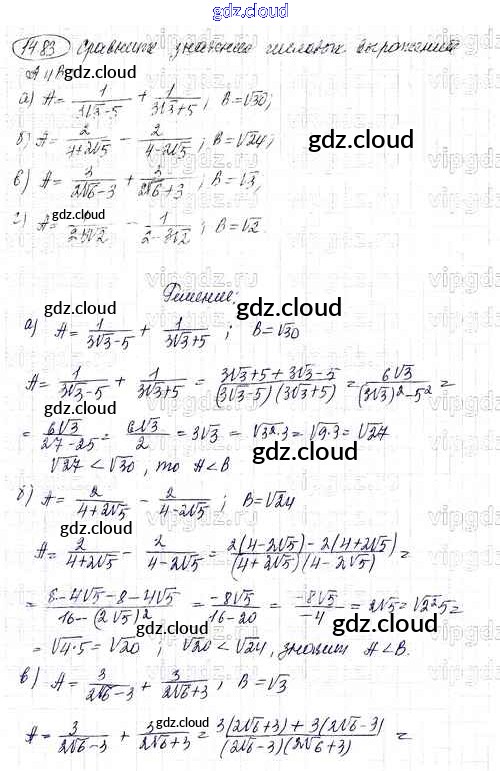 gdz.cloud
1483 Сравните значение числовых выражений
А и В
а) A = 1/(3√3-5) + 1/(3√3+5), B=√30;
б) A = 2/(4+2√5) - 2/(4-2√5); B=√24;
в) A = 3/(2√6-3) + 3/(2√6+3); B=√3,
г) A = 1/(2+3√2) - 1/(2-3√2); B=√2.
Решение:
а) A = 1/(3√3-5) + 1/(3√3+5); B=√30
A = 1/(3√3-5) + 1/(3√3+5) = (3√3+5+3√3-5)/((3√3-5)(3√3+5)) = 6√3/((3√3)²-5²) =
= 6√3/(27-25) = 6√3/2 = 3√3 = √3²·3 = √9·3 = √27
√27 < √30, то A<B
б) A = 2/(4+2√5) - 2/(4-2√5); B=√24
A = 2/(4+2√5) - 2/(4-2√5) = (2(4-2√5)-2(4+2√5))/((4+2√5)(4-2√5)) =
= (8-4√5-8-4√5)/(16-(2√5)²) = -8√5/(16-20) = -8√5/-4 = 2√5 = √2²5 =
= √4·5 = √20; √20 < √24, значит A<B.
в) A = 3/(2√6-3) + 3/(2√6+3); B=√3
A = 3/(2√6-3) + 3/(2√6+3) = (3(2√6+3)+3(2√6-3))/((2√6-3)(2√6+3)) =